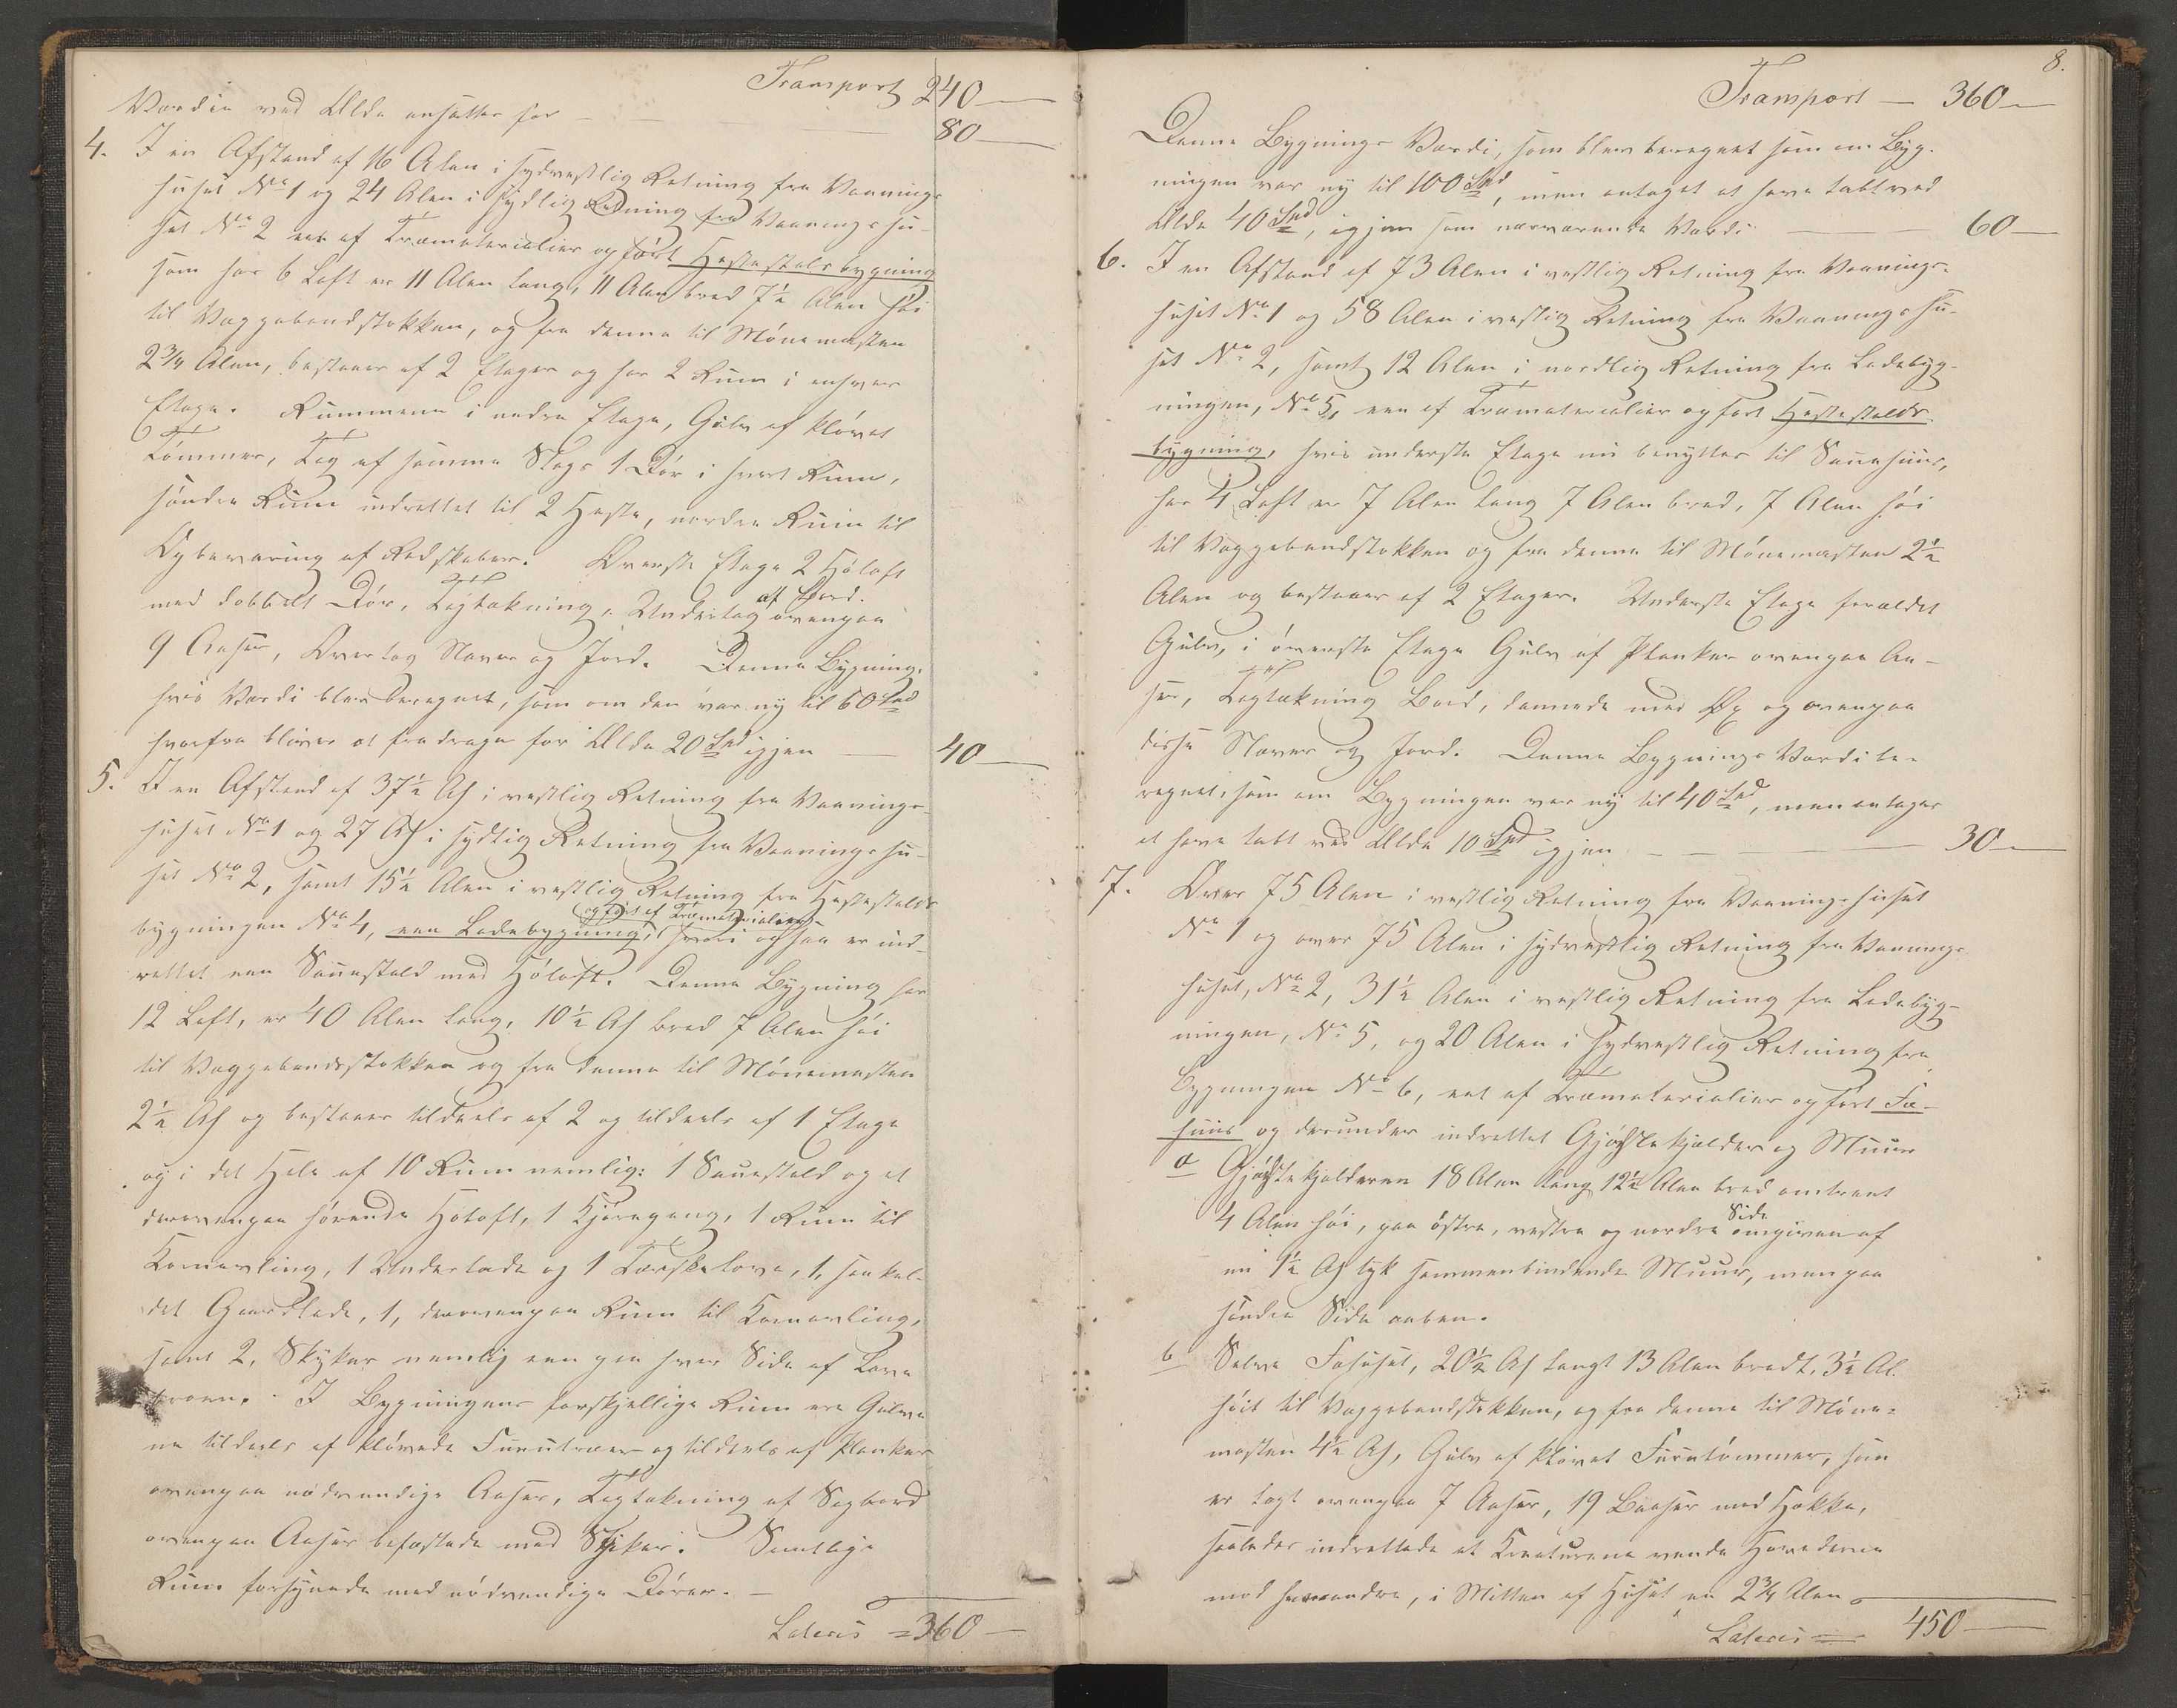 Transport 240 —
Værdie ved Ælde ansættes for — 80 —
4. I en Afstand af 16 Alen i sydvestlig Retning fra Vaanings-
huset No 1 og 24 Alen i sydlig Retning fra Vaaningshu-
set No 2 en af Træmaterialier opført Hestestalsbygning
som har 6 Loft er 11 Alen lang, 11 Alen bred 7½ Alen høi
til Vaggebandstokken, og fra denne til Mønemasten
2¾ Alen, bestaaer af 2 Etager og har 2 Rum i enhver
Etage. Rummene i nedre Etage, Gulv af kløvet
Tømmer, Tag af samme Slags 1 Dør i hvert Rum,
søndre Rum indrettet til 2 Heste, nordre Rum til
Opbevaring af Redskaber. Øverste Etage 2 Høloft
med dobbelt Dør, Tagtækning, Undertag af Bord. ovenpaa
9 Aaser, Overtag Næver og Jord. Denne Bygning,
hvis Værdi blev beregnet, som om den var ny til 60 Spd
hvorfra bliver at fradrage for Ælde 20 Spd igjen — 40 —
5. I en Afstand af 37½ Al i vestlig Retning fra Vaanings-
huset No 1 og 27 Al i sydlig Retning fra Vaaningshu-
set No 2, samt 15½ Alen i vestlig Retning fra Hestestalds
bygningen No 4, een Ladebygning, opført af Træmaterialier hvori ogsaa er ind-
rettet een Sauestald med Høloft. Denne Bygning har
12 Loft, er 40 Alen lang, 10½ Al bred 7 Alen høi
til Vaggebandsstokken og fra denne til Mønemasten
2½ Al og bestaaer tildeels af 2 og tildeels af 1 Etage
og i det Hele af 10 Rum nemlig: 1 Sauestald og et
derovenpaa hørende Høloft, 1 Kjøregang, 1 Rum til
Kornavling, 1 Underlade og 1 Tærskelove, 1, saakal-
det Gaardlade, 1, derovenpaa Rum til Kornavling,
samt 2, Skyker nemlig een paa hver Side af Lave
broen. I Bygningens forskjellige Rum ere Gulve
ne tildeels af kløvede Furutræer og tildeels af Planker
ovenpaa nødvendige Aaser, Tagtækning af Sagbord
ovenpaa Aaser befæstede med Spiker. Samtlige
Rum forsynede med nødvendige Dører. —
Lateris = 360 —
8.
Transport — 360 —
Denne Bygnings Værdi, som blev beregnet som om Byg-
ningen var ny til 100 Spd, men antaget at have tabt ved
Ælde 40 Spd, igjen som nærværende Værdi — 60 —
6. I en Afstand af 73 Alen i vestlig Retning fra Vaanings-
huset No 1 og 58 Alen i vestlig Retning fra Vaaningshu-
set No 2, samt 12 Alen i nordlig Retning fra Ladebyg-
ningen, No 5, een af Træmaterialier opført Hestestalds-
bygning, hvis underste Etage nu benyttes til Sauehuus,
har 4 Loft er 7 Alen lang 7 Alen bred, 7 Alen høi
til Vaggebandstokken og fra denne til Mønemasten 2½
Alen og bestaaer af 2 Etager. Underste Etage forældet
Gulv, i øverste Etage Gulv af Planker ovenpaa Aa-
ser, Tagtækning Bord, dannede med Øx og ovenpaa
disse Næver og Jord. Denne Bygnings Værdi be-
regnet, som om Bygningen var ny til 40 Spd, men antages
at have tabt ved Ælde 10 Spd igjen — 30 —
7. Over 75 Alen i vestlig Retning fra Vaaningshuset
No 1 og over 75 Alen i sydvestlig Retning fra Vaanings-
huset, No 2, 31½ Alen i vestlig Retning fra Ladebyg-
ningen, No 5, og 20 Alen i sydvestlig Retning fra
Bygningen No 6, eet af Træmaterialier opført Fæ-
huus og derunder indrettet Gjødslekjælder og Muur
a Gjødslekjælderen 18 Alen lang 12½ Alen bred omtrent
4 Alen høi, paa østre, vestre og nordre Side omgiven af
en 1½ Al tyk sammenbindende Muur, men paa
søndre Side aaben.
b Selve Fæhuset, 20½ Al langt 13 Alen bredt, 3½ Al.
høit til Vaggebandstokken, og fra denne til Møne-
masten 4½ Al, Gulv af kløvet Furutømmer, som
er lagt ovenpaa 7 Aaser, 19 Baaser med Hække,
saaledes indrettede at Kreaturene vende Hovederne
mod hverandre, i Mitten af Huset en 2¾ Alen
Lateris — 450 —